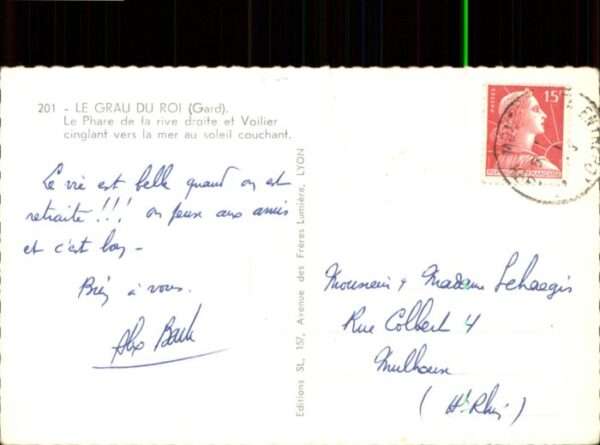 201 - LE GRAU DU ROI (Gard).
Le Phare de la rive droite et Voilier
cinglant vers la mer au soleil couchant.
La vie est belle quand on est
retraité!!! on pense aux amis
et c'est bon -
Bien à vous.
Editions SL, 157, Avenue des Frères Lumière, LYON
POSTES
15F
Monsieur & Madame Schaegis
Rue Colbert 4
Mulhouse
(Ht Rhin)